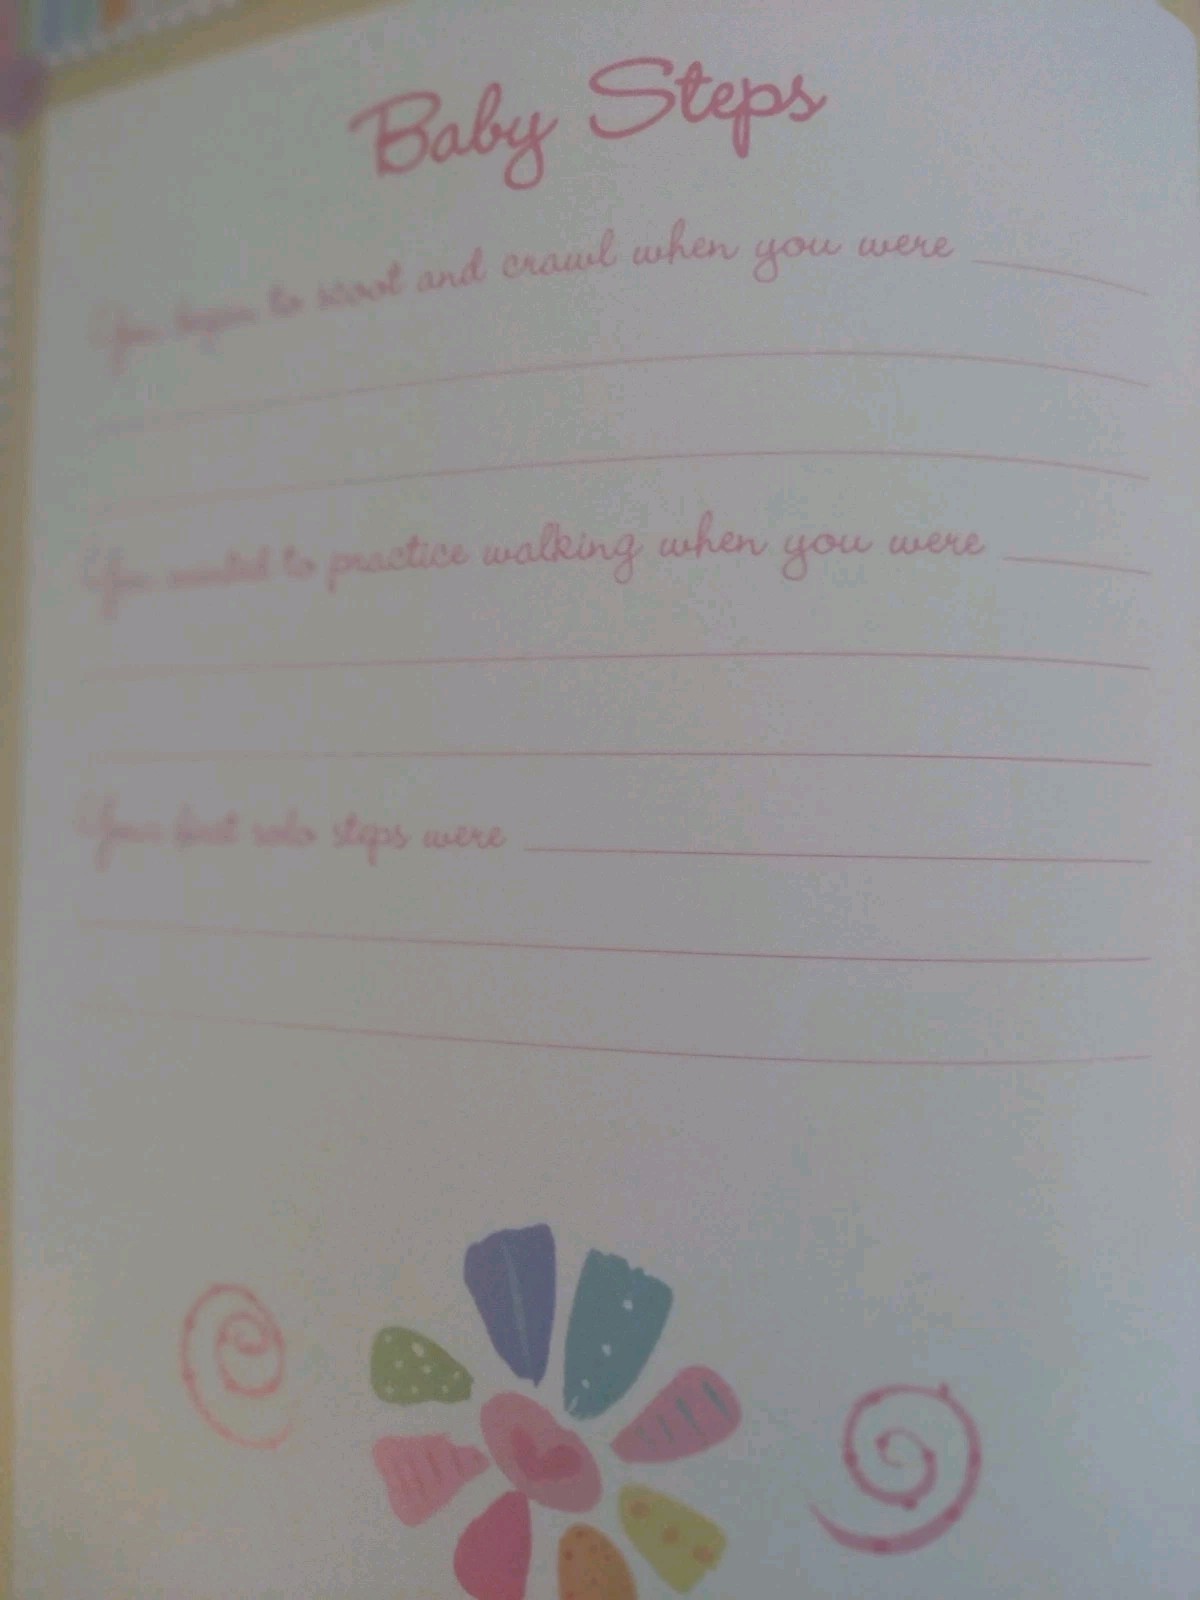 Baby Steps
You began to scoot and crawl when you were
You wanted to practice walking when you were
Your first solo steps were